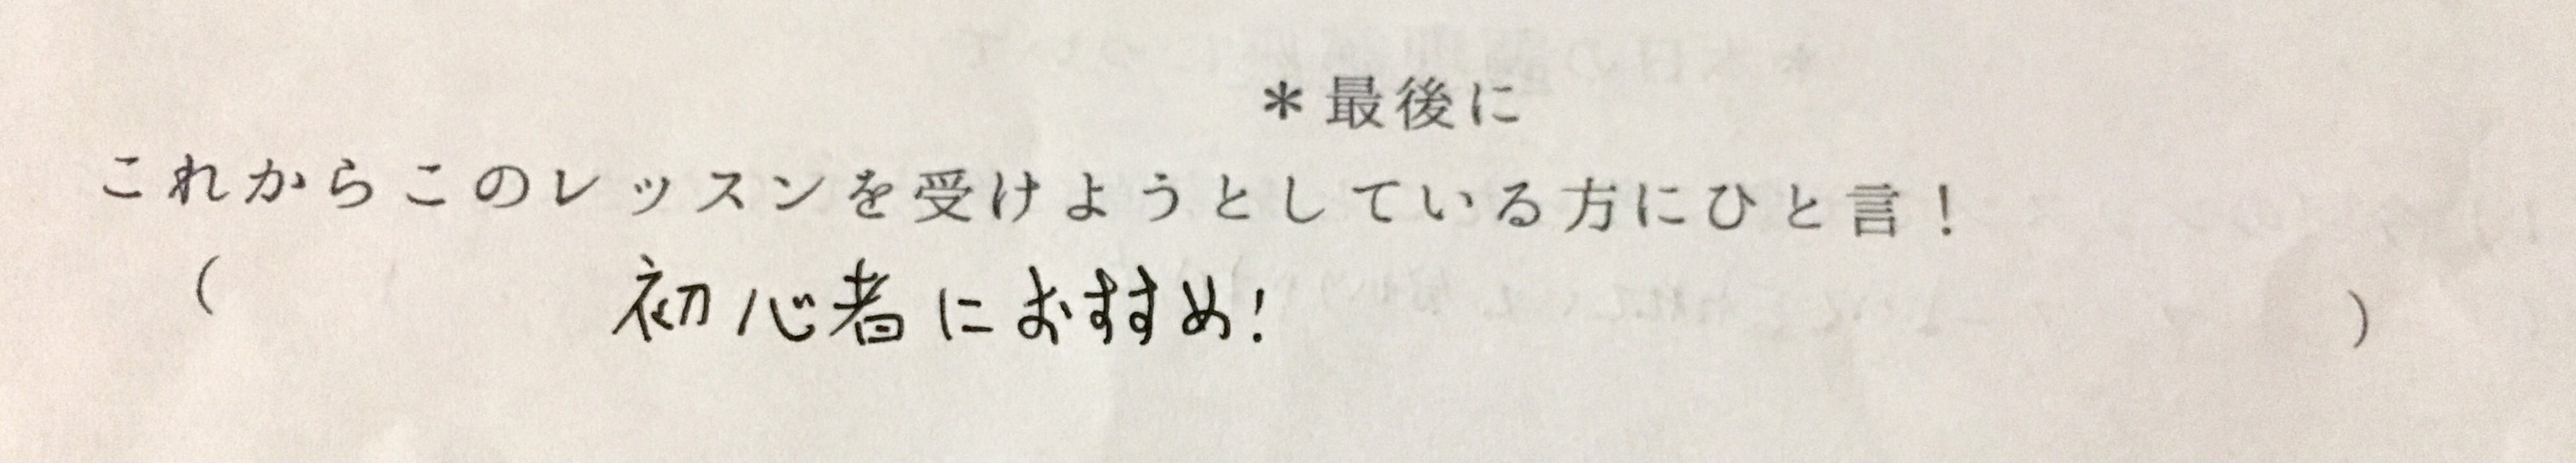 ＊最後に
これからこのレッスンを受けようとしている方にひと言！
（　初心者におすすめ！　）